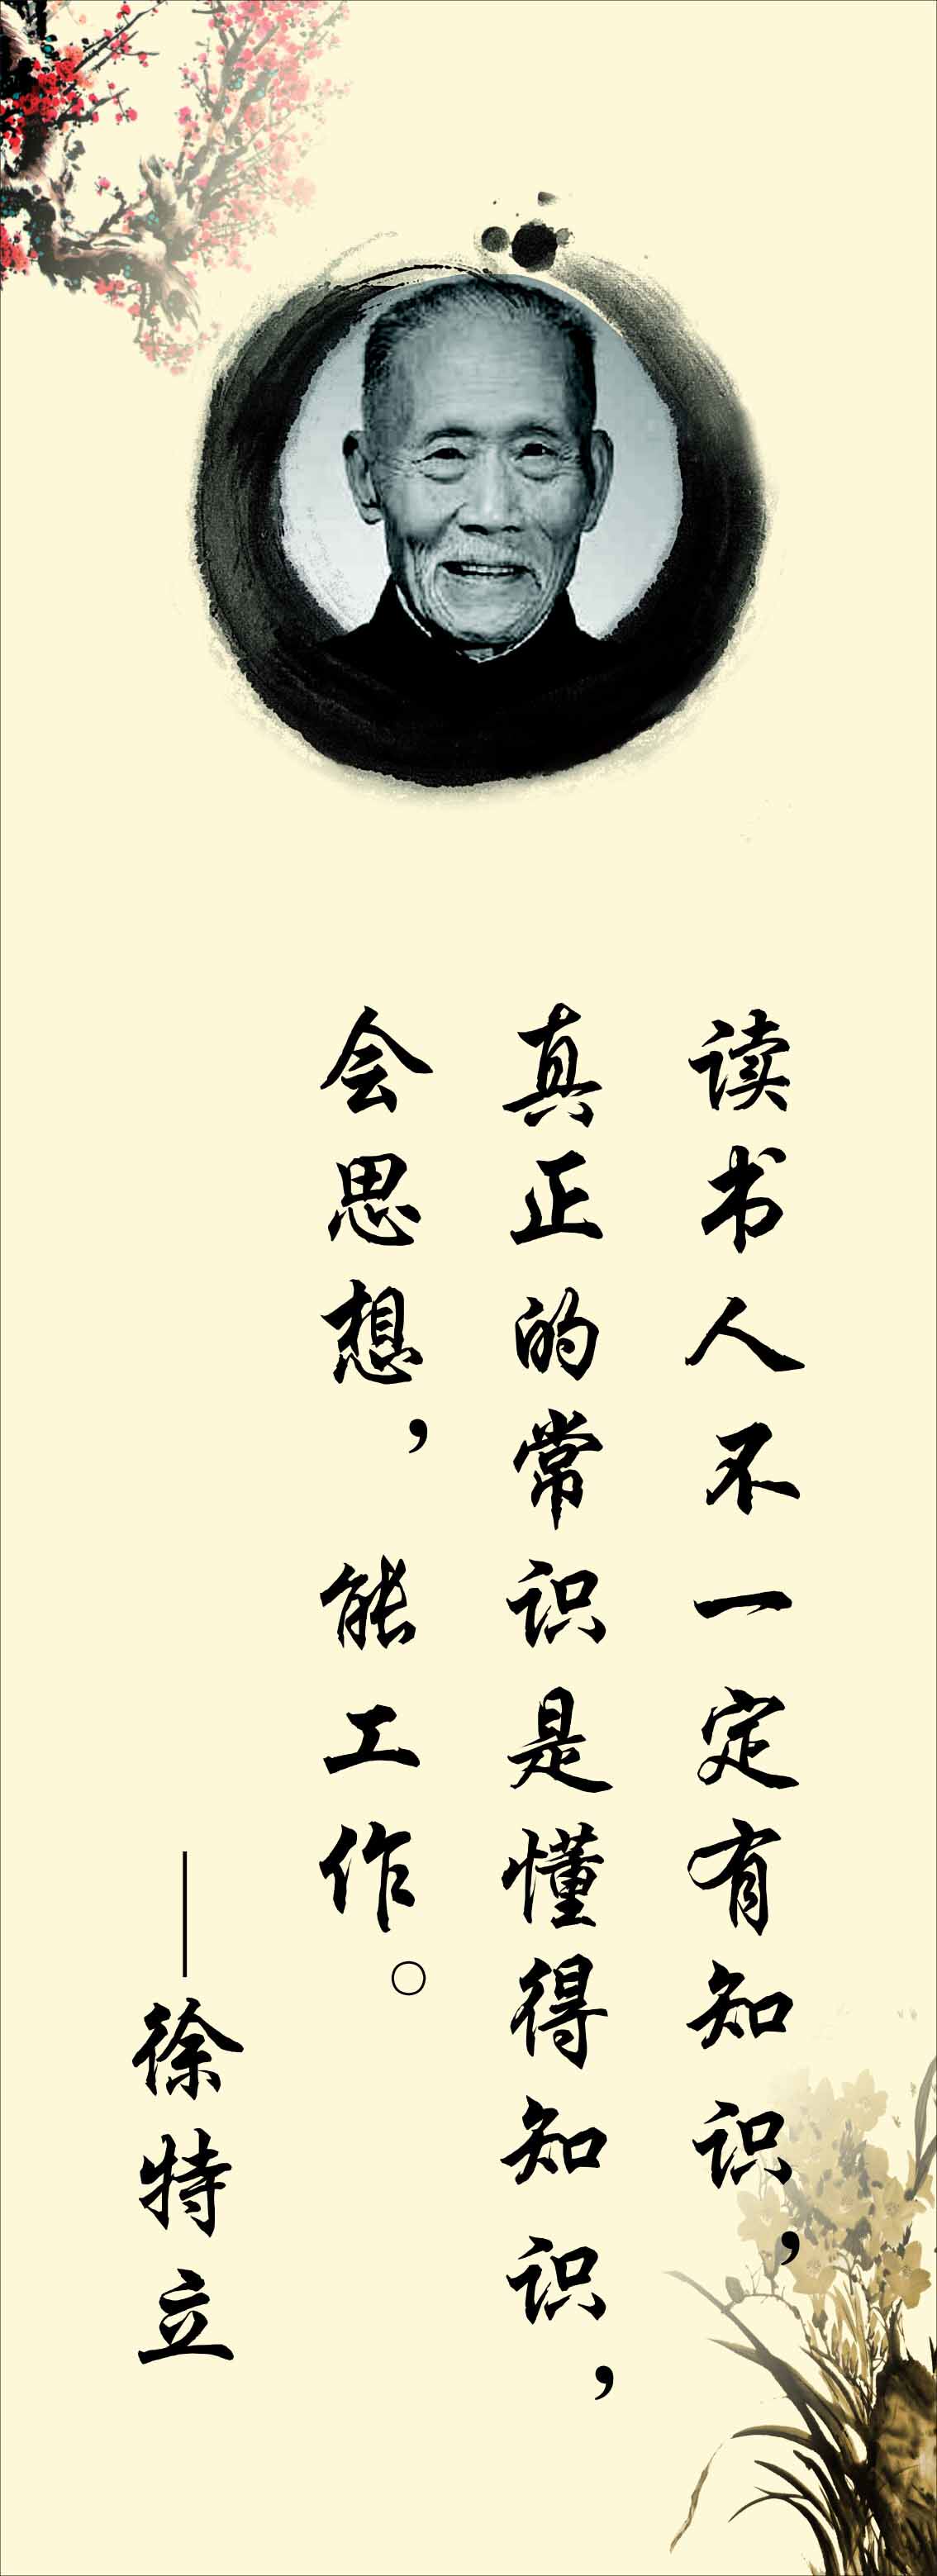 读书人不一定有知识，
真正的常识是懂得知识，
会思想，能工作。
——徐特立